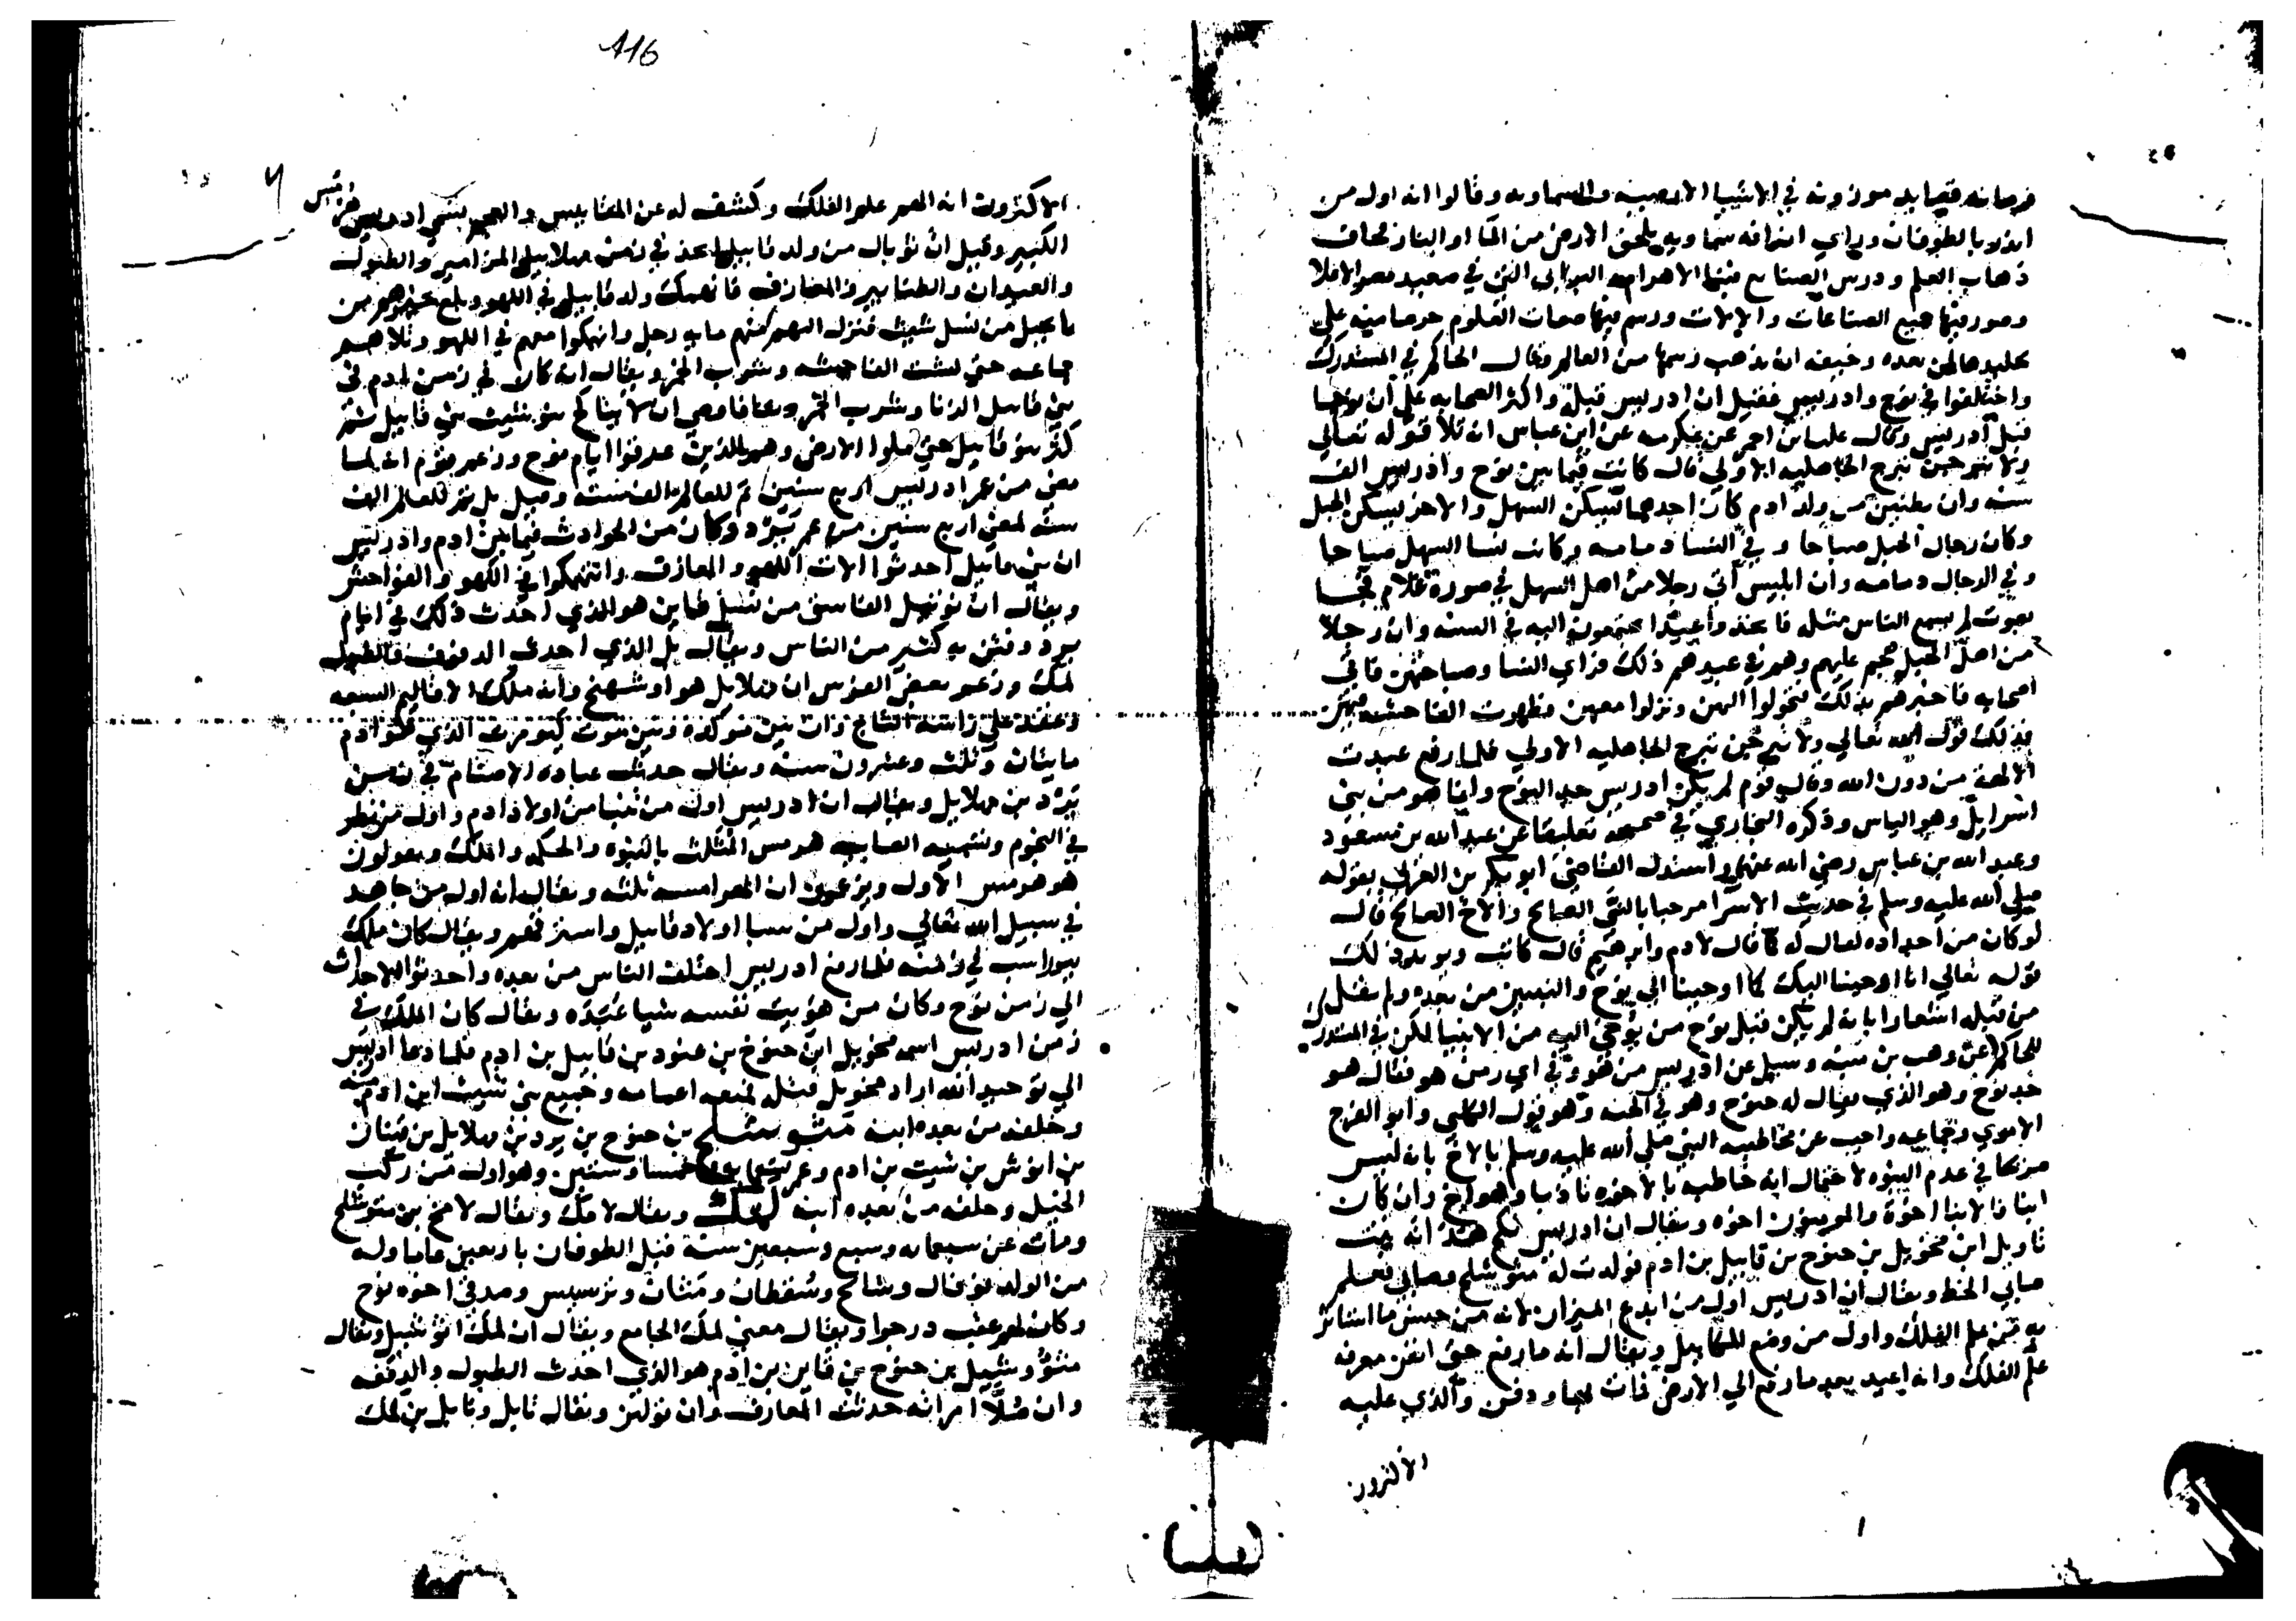 زمانه قصايد موزونه في الاشيا الارضيه والسماويه وقالوا انه اول من
انذر بالطوفان وراي ان افه سماويه يلحق الارض من الما او النار فخاف
ذهاب العلم ودرس الصنايع فبنا الاهرام البرابي التي في صعيد مصر الاعلا
وصور فيها جميع الصناعات والالات ورسم فيها صفات العلوم حرصا منه علي
تخليدها لمن بعده وخيفه ان يذهب رسمها من العالم وقال الحاكم في المستدرك
واختلفوا في نوح وادريس فقيل ان ادريس قبله واكثر الصحابه علي ان نوحا
قبل ادريس وقال علبا بن احمر عن عكرمه عن ابن عباس انه تلا قوله تعالي
ولا تبرجن تبرج الجاهليه الاولي قال كانت فيما بين نوح وادريس الف
سنه وان بطنين من ولد ادم كان احدهما يسكن السهل والاخر يسكن الجبل
وكان رجال الجبل صباحا وفي النسا دمامه وكانت نسا السهل صباحا
وفي الرجال دمامه وان ابليس اتي رجلا من اهل السهل في صورة غلام فجا
بصوت لم يسمع الناس مثله فاتخذوا عيدا يجتمعون اليه في السنه وان رجلا
من اهل الجبل هجم عليهم وهم في عيدهم ذلك فراي النسا وصباحتهن فاتي
اصحابه فاخبرهم بذلك فتحولوا اليهن ونزلوا معهن فظهرت الفاحشه فيهن
فذلك قول الله تعالي ولا تبرجن تبرج الجاهليه الاولي فلما رفع عبدت
الالهة من دون الله وقال قوم لم يكن ادريس جد النوح وانما هو من بني
اسرايل وهو الياس وذكره البخاري في صحيحه تعليقا عن عبد الله بن مسعود
وعبد الله بن عباس رضي الله عنهم واستدل القاضي ابو بكر بن العربي بقوله
صلي الله عليه وسلم في حديث الاسرا مرحبا بالنبي الصالح والاخ الصالح قال
لو كان من اجداده لقال له كما قال لادم وابرهيم قال كاتب ويويد ذلك
قوله تعالي انا اوحينا اليك كما اوحينا الي نوح والنبيين من بعده ولم يقل
من قبله اشعارا بانه لم يكن قبل نوح من يوحي اليه من الانبيا لكن في المستدرك
للحاكم عن وهب بن منبه وسيل عن ادريس من هو وفي اي زمن هو فقال هو
جد نوح وهو الذي يقال له خنوخ وهو في الجنه وهو قول الكلبي وابو الفرج
الاموي وجماعه واجيب عن مخاطبه النبي صلي الله عليه وسلم بالاخ بانه ليس
صريحا في عدم البنوه لاحتمال انه خاطب بالاخوه تادبا وهو اخ وان كان
ابنا فالانبا اخوة والمومنون اخوه ويقال ان ادريس نكح هند انه بنت
تاويل ابن محويل بن خنوخ بن قابيل بن ادم فولدت له متوشلح وصابي فعلم
صابي الخط ويقال ان ادريس اول من ابدع الميزان لانه من حسن ما استاثر
به من علم الفلك واول من وضع المكاييل ويقال انه ما رفع حتي اتقن معرفه
علم الفلك وانه اعيد بعد ما رفع الي الارض فمات بها ودفن والذي عليه
الاكثرون
116
الاكثرون انه الهم علم الفلك وكشف له عن المقاييس والعجم تسمي ادريس هرمس
الكبير وقيل ان توبال من ولد قابيل اتخذ في زمن مهلاييل المزامير والطبول
والعيدان والطنابير والمعازف فانهمك ولد قابيل في اللهو وبلغ خبرهم من
بالجبل من نسل شيث فنزل اليهم منهم مايه رجل وانهمكوا معهم في اللهو وتلاهم
جماعه حتي فشت الفاحشه وشرب الخمر ويقال انه كان في زمن ادم في
بني قابيل الزنا وشرب الخمر والغنا فاوصي ان لا يناكح بنو شيث بني قابيل ثم
كثر بنو قابيل حتي ملوا الارض وهم الذين غرقوا ايام نوح وزعم قوم انه لما
مضي من عمر ادريس اربع سنين تم للعالم الف سنه وقيل بل تم للعالم الف
سنه لمضي اربع سنين من عمر يرد وكان من الحوادث فيما بين ادم وادريس
ان بني قابيل احدثوا الات اللهو والمعازف وانهمكوا في اللهو والفواحش
ويقال ان نوفيل الفاسق من نسل قاين هو الذي احدث ذلك في ايام
يرد وفتن به كثير من الناس ويقال بل الذي احدث الدفوف والطبول
لمك وزعم بعض الفرس ان مهلايل هو اوشهنج وانه ملك الاقاليم السبعه
وعقد علي راسه التاج وان بين مولده وبين موت كيومرت الذي هو ادم
مايتان وثلث وعشرون سنه ويقال حدثت عباده الاصنام في زمن
يرد بن مهلايل ويقال ان ادريس اول من تنبا من اولاد ادم واول من نظر
في النجوم وتسميه الصابيه هرمس المثلث بالنبوه والحكمه والملك ويقولون
هو هرمس الاول ويزعمون ان الهرامسه ثلثه ويقال انه اول من جاهد
في سبيل الله تعالي واول من سبا اولاد قابيل واسترقهم ويقال كان ملك
بيوراسب في زمنه فلما رفع ادريس اختلف الناس من بعده واحدثوا الاحداث
الي زمن نوح وكان من هويت نفسه شيا عبده ويقال كان الملك في
زمن ادريس اسمه محويل ابن خنوخ بن عنود بن قابيل بن ادم فلما دعا ادريس
الي توحيد الله اراد محويل قتله فمنعه اعمامه وجميع بني شيث ابن ادم منه
وخلفه من بعده ابنه متوشلح بن خنوخ بن يرد بن مهلايل بن قينان
بن انوش بن شيث بن ادم وعمر تسعمايه وخمسا وستين وهو اول من ركب
الخيل وخلفه من بعده ابنه لمك ويقال لامك ويقال لامخ بن متوشلح
ومات عن سبعمايه وسبع وسبعين سنة قبل الطوفان باربعين عاما وله
من الولد نوح وكان لهم عقب درجوا ويقال معني لمك الجامع ويقال ان لمك
متوشيل بن خنوخ بن قاين بن ادم هو الذي احدث الطبول والدفف
وان صلا امراته حدثت المعازف وان توبلين ويقال تابل وثابل بن لمك